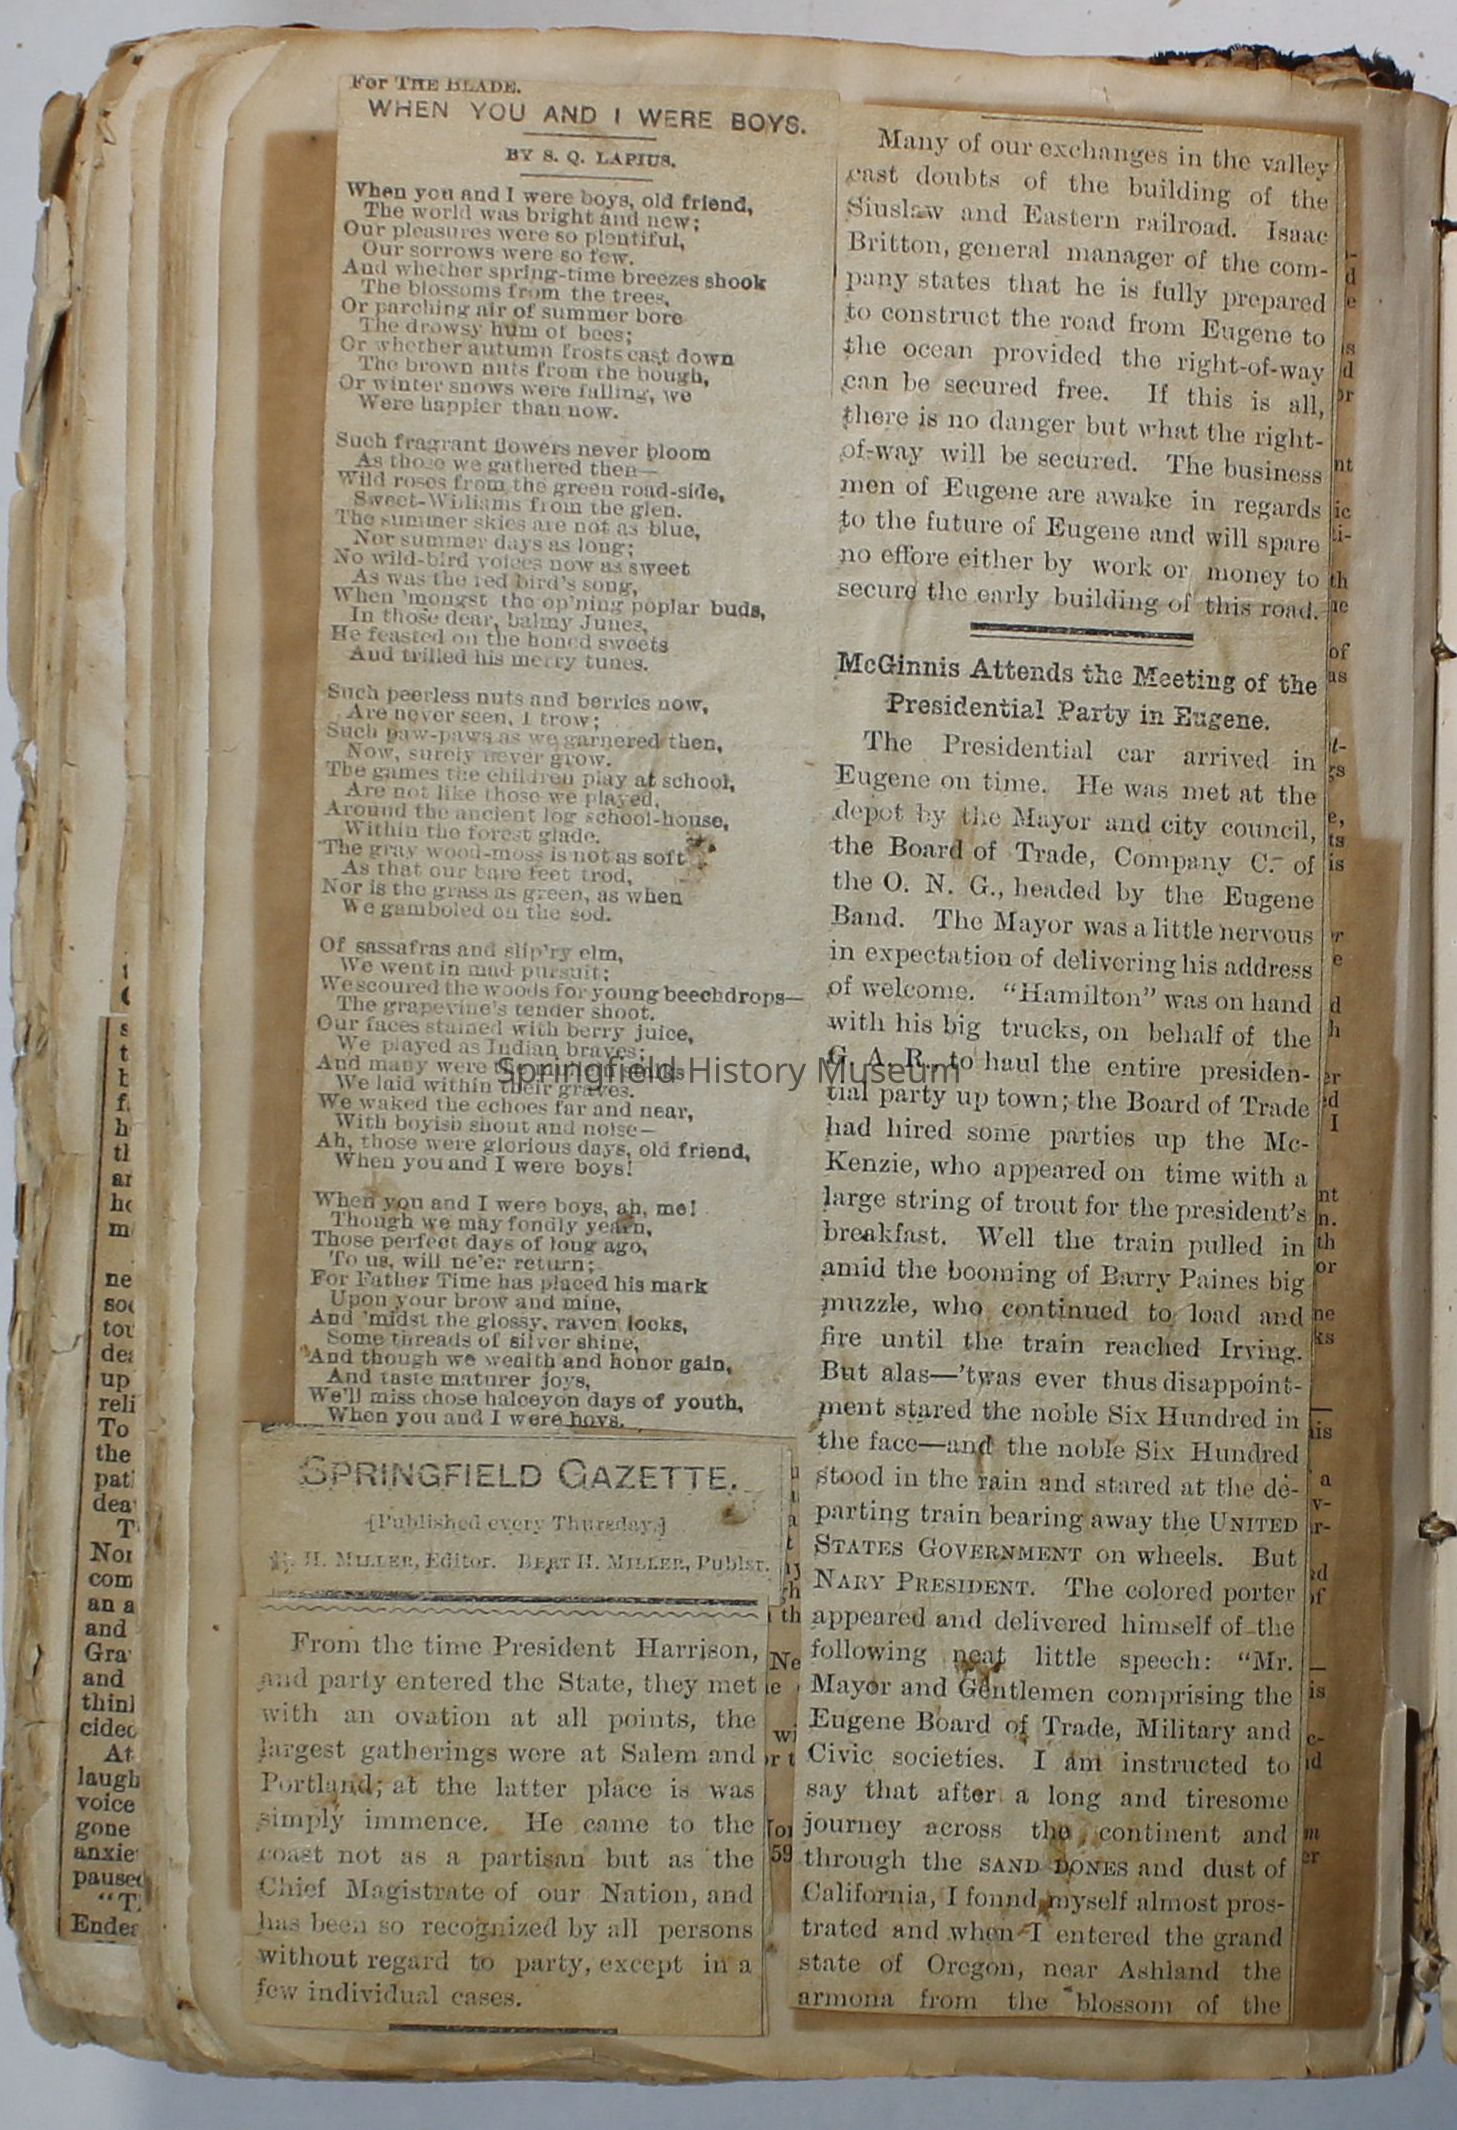 For THE BLADE.
WHEN YOU AND I WERE BOYS.
BY S. Q. LAPIUS.
When you and I were boys, old friend,
The world was bright and new;
Our pleasures were so plentiful,
Our sorrows were so few.
And whether spring-time breezes shook
The blossoms from the trees,
Or parching air of summer bore
The drowsy hum of bees;
Or whether autumn frosts cast down
The brown nuts from the bough,
Or winter snows were falling, we
Were happier than now.
Such fragrant flowers never bloom
As those we gathered then—
Wild roses from the green road-side,
Sweet-Williams from the glen.
The summer skies are not as blue,
Nor summer days as long;
No wild-bird voices now as sweet
As was the red bird's song,
When 'mongst the op'ning poplar buds,
In those dear, balmy Junes,
He feasted on the honed sweets
And trilled his merry tunes.
Such peerless nuts and berries now,
Are never seen, I trow;
Such paw-paws as we garnered then,
Now, surely never grow.
The games the children play at school,
Are not like those we played,
Around the ancient log school-house,
Within the forest glade.
The gray wood-moss is not as soft
As that our bare feet trod,
Nor is the grass as green, as when
We gamboled on the sod.
Of sassafras and slip'ry elm,
We went in mad pursuit;
We scoured the woods for young beechdrops—
The grapevine's tender shoot.
Our faces stained with berry juice,
We played as Indian braves;
And many were the
We laid within their graves.
We waked the echoes far and near,
With boyish shout and noise—
Ah, those were glorious days, old friend,
When you and I were boys!
When you and I were boys, ah, me!
Though we may fondly yearn,
Those perfect days of long ago,
To us, will ne'er return;
For Father Time has placed his mark
Upon your brow and mine,
And 'midst the glossy, raven locks,
Some threads of silver shine,
And though we wealth and honor gain,
And taste maturer joys,
We'll miss those halceyon days of youth,
When you and I were boys.
SPRINGFIELD GAZETTE.
[Published every Thursday.]
H. MILLER, Editor. BERT H. MILLER, Publsr.
From the time President Harrison,
and party entered the State, they met
with an ovation at all points, the
largest gatherings were at Salem and
Portland; at the latter place is was
simply immence. He came to the
coast not as a partisan but as the
Chief Magistrate of our Nation, and
has been so recognized by all persons
without regard to party, except in a
few individual cases.
Many of our exchanges in the valley
cast doubts of the building of the
Siuslaw and Eastern railroad. Isaac
Britton, general manager of the com-
pany states that he is fully prepared
to construct the road from Eugene to
the ocean provided the right-of-way
can be secured free. If this is all,
there is no danger but what the right-
of-way will be secured. The business
men of Eugene are awake in regards
to the future of Eugene and will spare
no effore either by work or money to
secure the early building of this road.
McGinnis Attends the Meeting of the
Presidential Party in Eugene.
The Presidential car arrived in
Eugene on time. He was met at the
depot by the Mayor and city council,
the Board of Trade, Company C. of
the O. N. G., headed by the Eugene
Band. The Mayor was a little nervous
in expectation of delivering his address
of welcome. "Hamilton" was on hand
with his big trucks, on behalf of the
G. A. R., to haul the entire presiden-
tial party up town; the Board of Trade
had hired some parties up the Mc-
Kenzie, who appeared on time with a
large string of trout for the president's
breakfast. Well the train pulled in
amid the booming of Barry Paines big
muzzle, who continued to load and
fire until the train reached Irving.
But alas—'twas ever thus disappoint-
ment stared the noble Six Hundred in
the face—and the noble Six Hundred
stood in the rain and stared at the de-
parting train bearing away the UNITED
STATES GOVERNMENT on wheels. But
NARY PRESIDENT. The colored porter
appeared and delivered himself of the
following neat little speech: "Mr.
Mayor and Gentlemen comprising the
Eugene Board of Trade, Military and
Civic societies. I am instructed to
say that after a long and tiresome
journey across the continent and
through the SAND DONES and dust of
California, I fonnd myself almost pros-
trated and when I entered the grand
state of Oregon, near Ashland the
armona from the blossom of the
Springfield History Museum